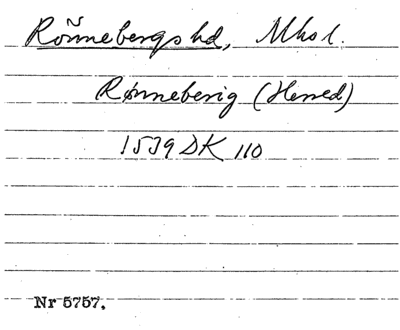 Rönnebergshd, Mksl.
Rønneberig (Herred)
1539 DK 110
Nr 5757.